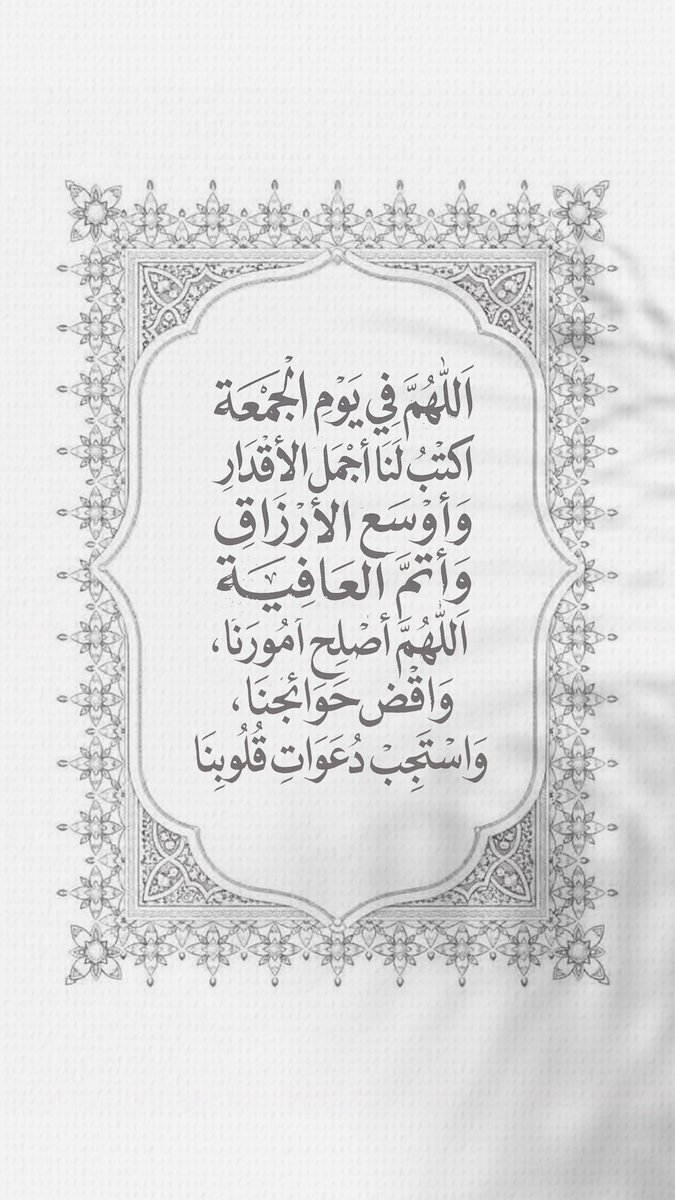 اَللّٰهُمَّ فِي يَوْمِ الْجُمْعَة
اكْتُبْ لَنَا أجْمَل الأقْدَارِ
وَأوْسَع الأرْزَاقِ
وَأتمَّ العَافِيَة
اَللّٰهُمَّ أصْلِح اَمُورَنَا،
وَاقْضِ حَوَائجنَا،
وَاسْتَجِبْ دُعَوَاتِ قُلُوبِنَا